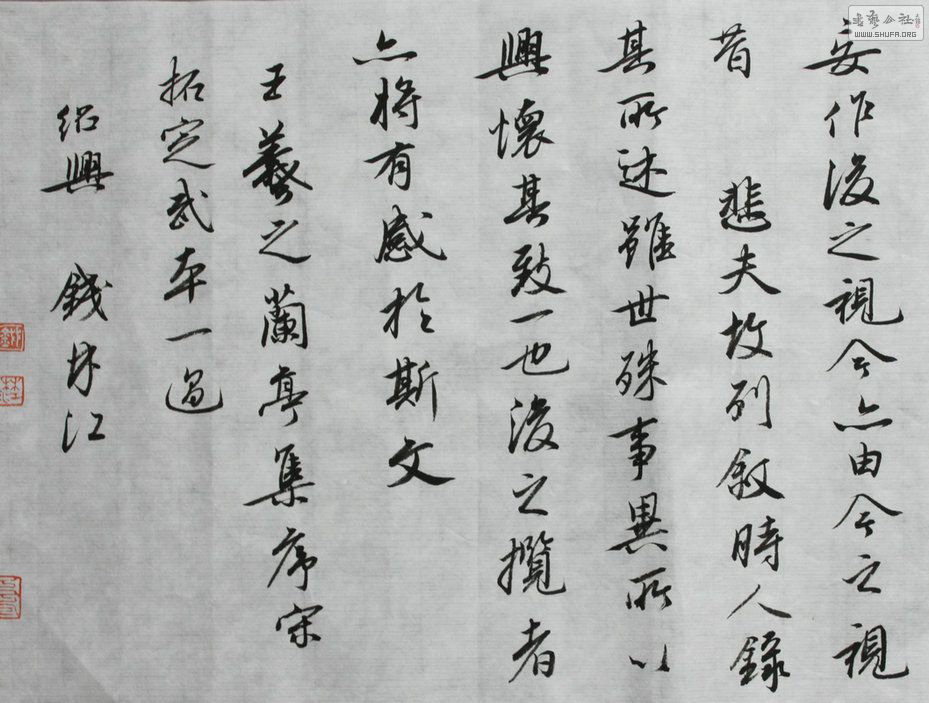 妄作後之視今亦由今之視
昔 悲夫故列敘時人錄
其所述雖世殊事異所以
興懷其致一也後之攬者
亦將有感於斯文
王羲之蘭亭集序宋
拓定武本一過
紹興 錢林江
書藝公社
WWW.SHUFA.ORG